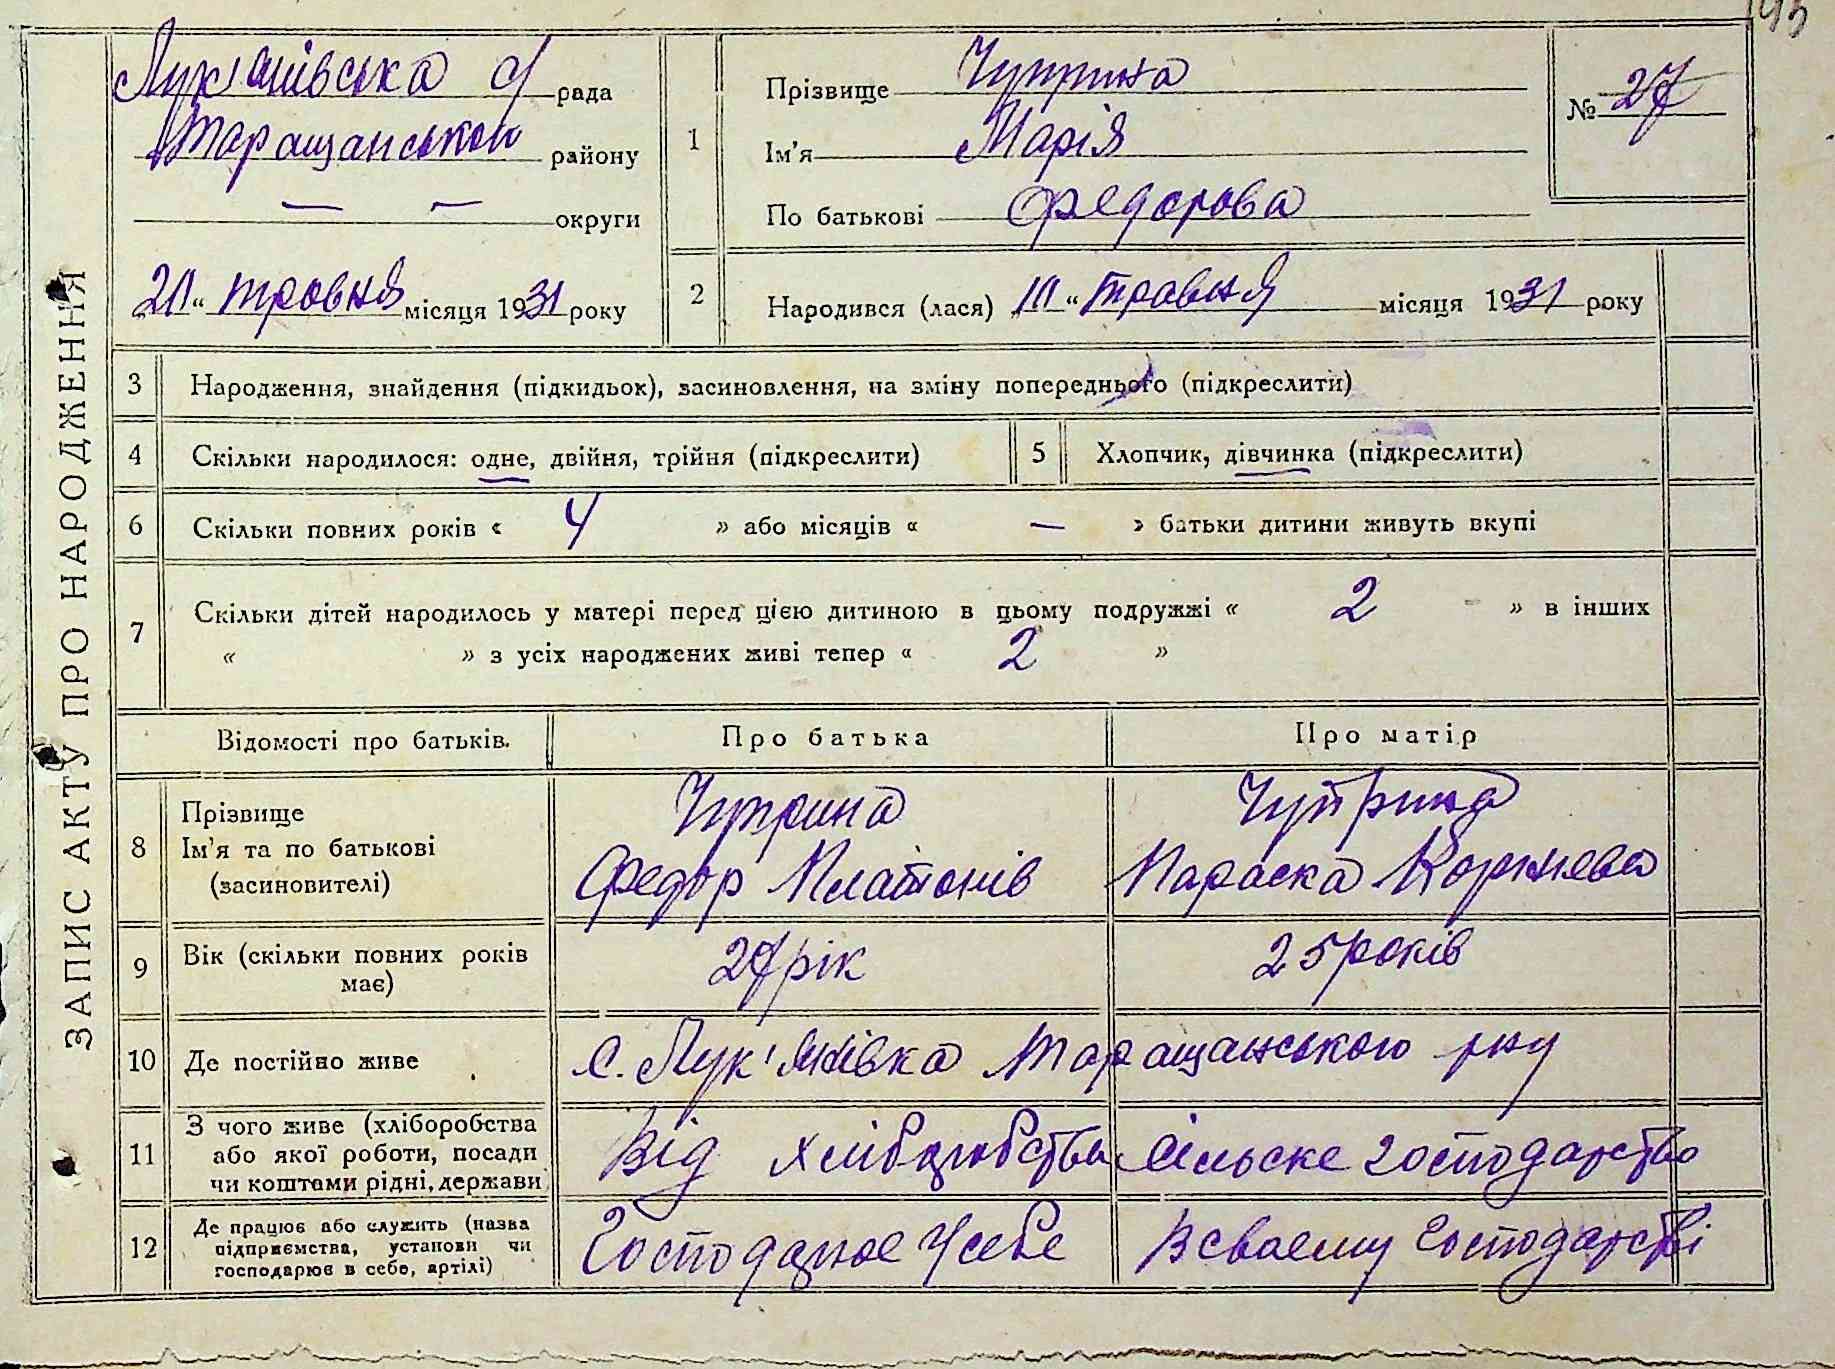 193
Лук'янівська с/ рада
Таращанської району
— — округи
20 „ травня місяця 1931 року
1
Прізвище Чуприна
Ім'я Марія
По батькові Федорова
№ 27
2
Народився (лася) „10 „ травня місяця 1931 року
ЗАПИС АКТУ ПРО НАРОДЖЕННЯ
3 Народження, знайдення (підкидьок), засиновлення, на зміну попереднього (підкреслити)
4 Скільки народилося: одне, двійня, трійня (підкреслити) 5 Хлопчик, дівчинка (підкреслити)
6 Скільки повних років « 4 » або місяців « — » батьки дитини живуть вкупі
7 Скільки дітей народилось у матері перед цією дитиною в цьому подружжі « 2 » в інших
« » з усіх народжених живі тепер « 2 »
Відомості про батьків. Про батька Про матір
8 Прізвище
Ім'я та по батькові
(засиновителі)
Чуприна
Федор Платонів
Чуприна
Параска Корнієва
9 Вік (скільки повних років
має)
27 рік 25 років
10 Де постійно живе с. Лук'янівка Таращанського рну
11 З чого живе (хліборобства
або якої роботи, посади
чи коштами рідні, держави
Від хліборобства Сільске господарство
12 Де працює або служить (назва
підприємства, установи чи
господарює в себе, артілі)
Господарює у себе В своему господарстві